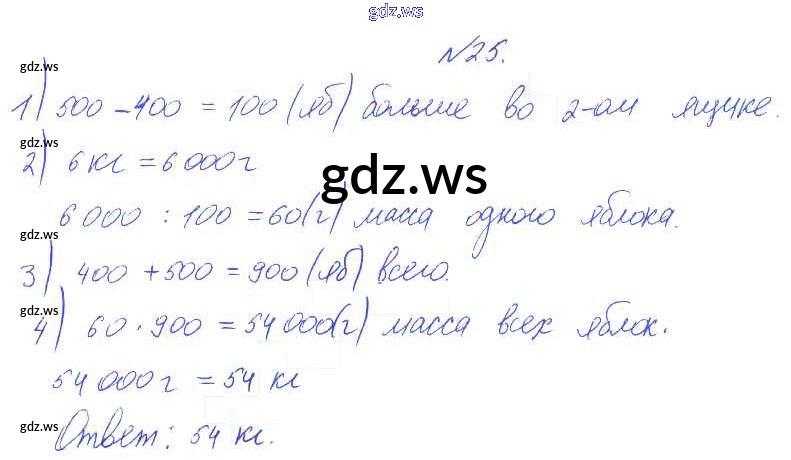 gdz.ws
№25.
gdz.ws
1) 500 – 400 = 100 (яб) больше во 2-ом ящике.
gdz.ws
2) 6 кг = 6 000 г
gdz.ws
6 000 : 100 = 60 (г) масса одного яблока.
gdz.ws
3) 400 + 500 = 900 (яб) всего.
gdz.ws
4) 60 · 900 = 54 000 (г) масса всех яблок.
54 000 г = 54 кг
gdz.ws
Ответ: 54 кг.